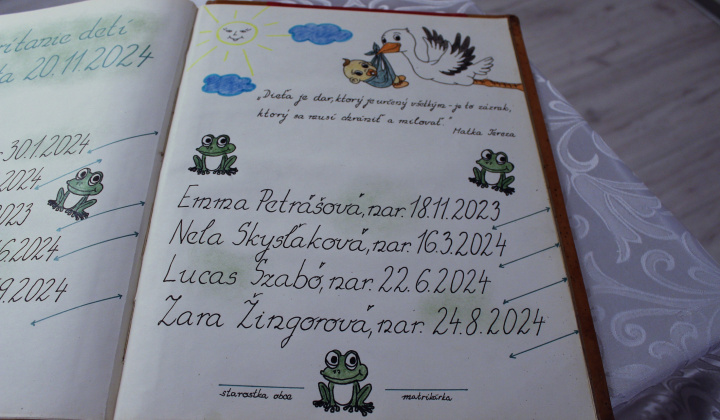 ritanie detí
20.11.2024
-30.1.2024
2024
2023
6.2024
9.2024
„Dieťa je dar, ktorý je určený všetkým - je to zázrak,
ktorý sa musí chrániť a milovať."
Matka Tereza
Emma Petrášová, nar. 18.11.2023
Nela Skysľaková, nar. 16.3.2024
Lucas Szabó, nar. 22.6.2024
Zara Žingorová, nar. 24.8.2024
starostka obce
matrikárka